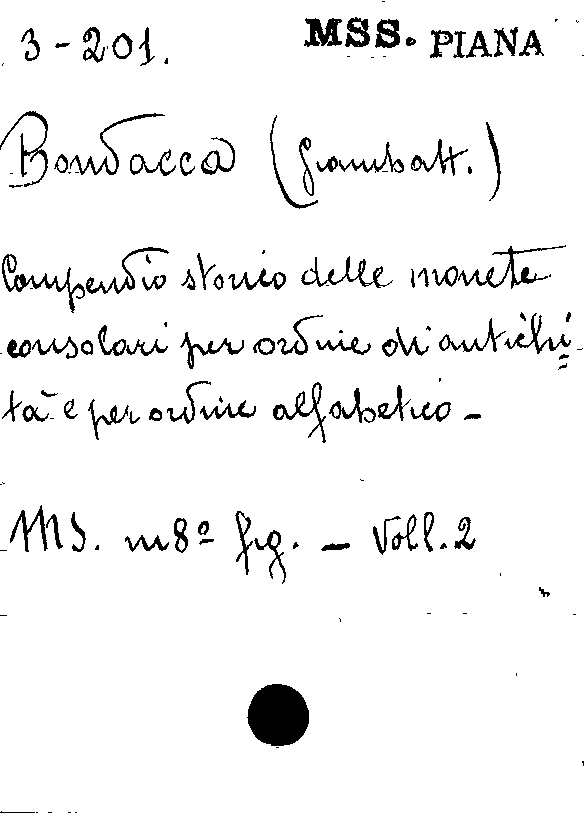 3-201. MSS. PIANA
Bondacca (Giambatt.)
Compendio storico delle monete
consolari per ordine di antichi=
tà e per ordine alfabetico -
MS. in 8º fig. - Voll. 2